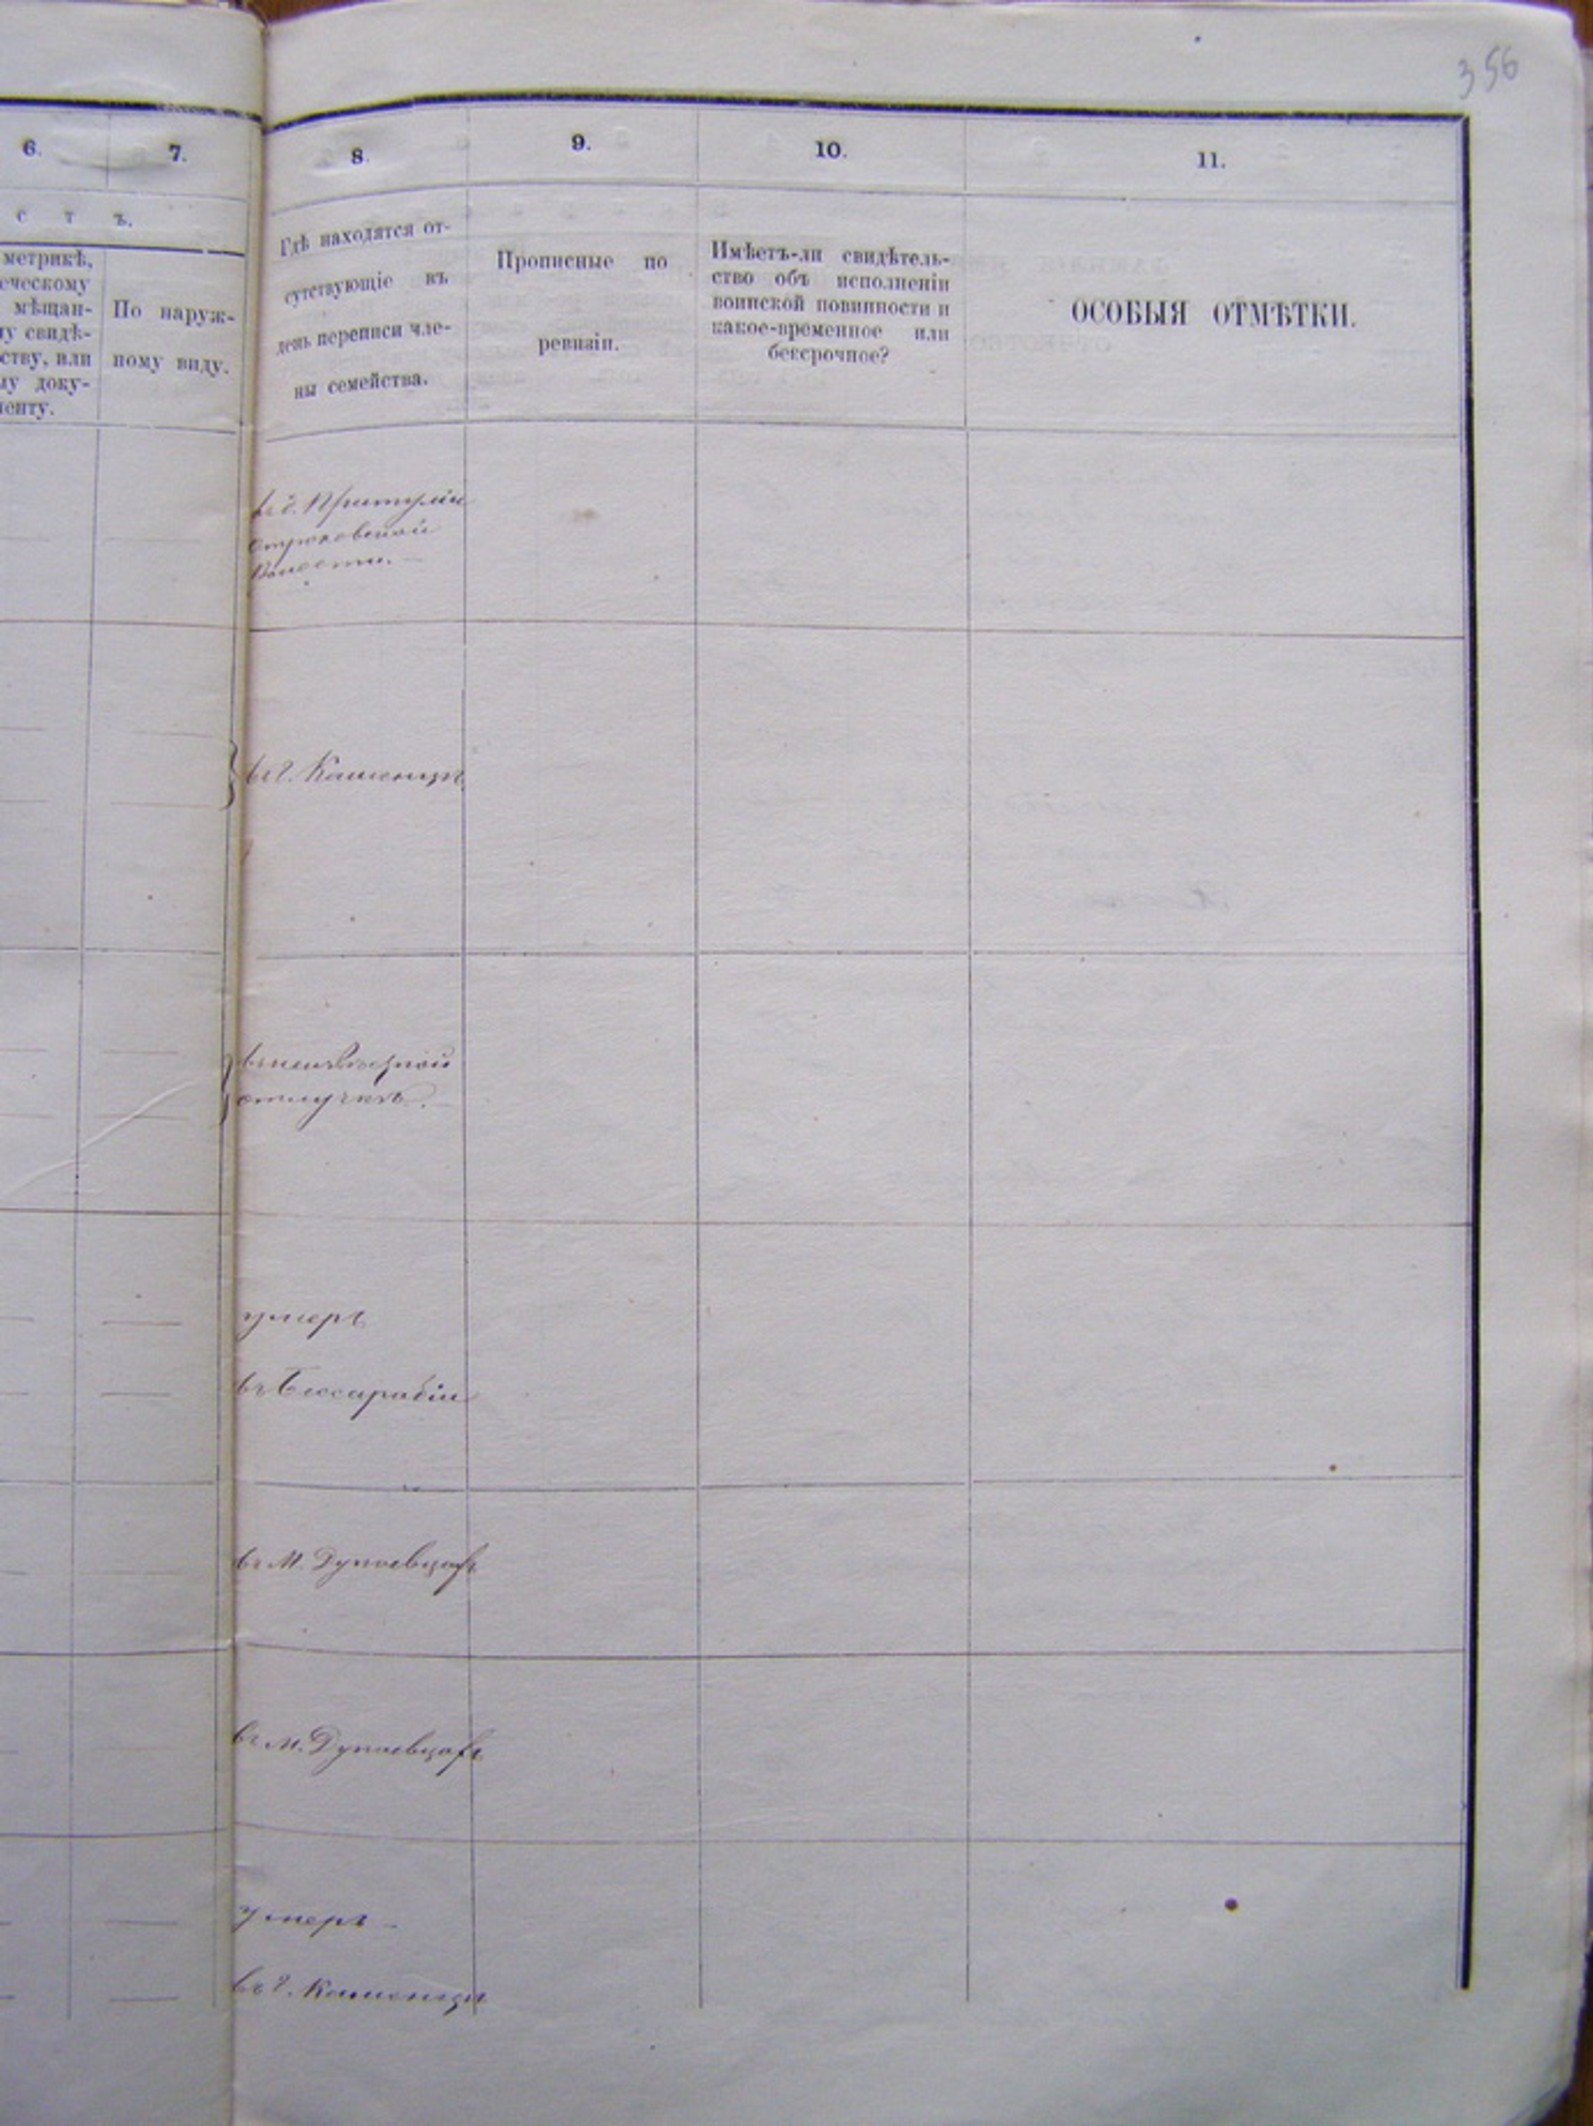 356
6.
7.
8.
9.
10.
11.
с т ъ.
метрикѣ,
еческому
мѣщан-
у свидѣ-
ству, или
му доку-
менту.
По наруж-
ному виду.
Гдѣ находятся от-
сутствующіе въ
день переписи чле-
ны семейства.
Прописные по
ревизіи.
Имѣетъ-ли свидѣтель-
ство объ исполненіи
воинской повинности и
какое-временное или
безсрочное?
ОСОБЫЯ ОТМѢТКИ.
волости.
въ г. Каменцѣ
въ неизвѣстной
отлучкѣ.
умеръ
въ Бессарабіи
въ М. Дунаевцахъ
въ М. Дунаевцахъ
умеръ
въ г. Каменцѣ